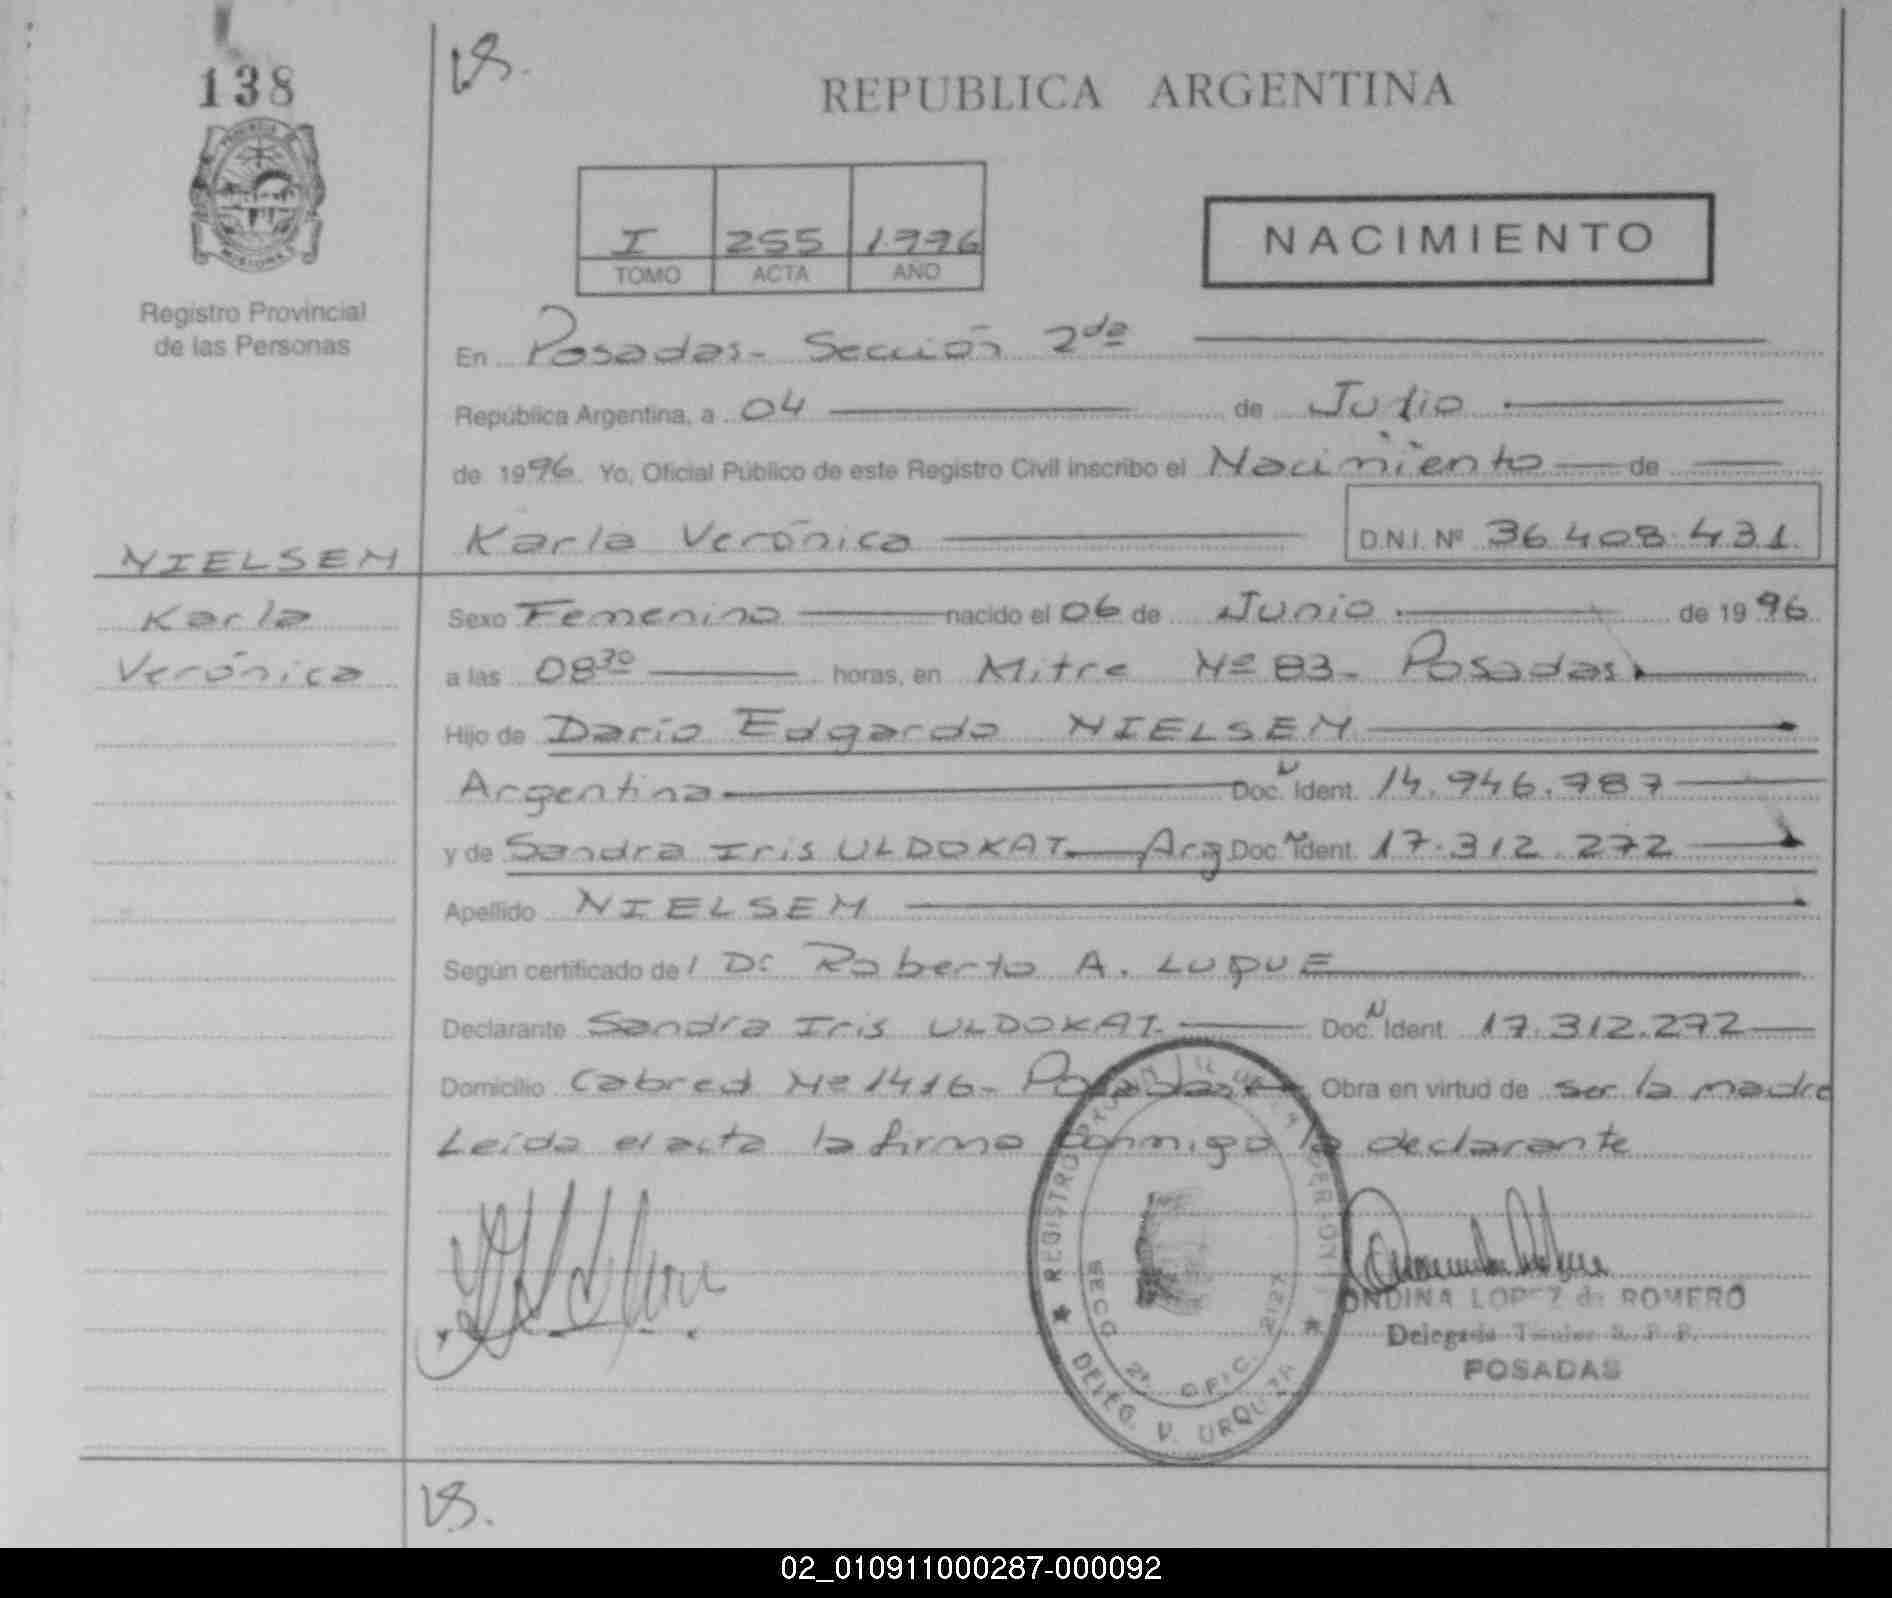 138
VS.
REPUBLICA ARGENTINA
I 255 1996
TOMO ACTA AÑO
NACIMIENTO
Registro Provincial
de las Personas
En Posadas - Sección 2da
República Argentina, a 04 de Julio
de 1996. Yo, Oficial Público de este Registro Civil inscribo el Nacimiento de
NIELSEM
Karla Verónica
D.N.I. Nº 36.408.431.
Karla
Verónica
Sexo Femenino nacido el 06 de Junio de 1996
a las 08 30 horas, en Mitre Nº 83 - Posadas
Hijo de Dario Edgardo NIELSEM
Argentina Doc. N Ident. 14.946.787
y de Sandra Iris ULDOKAT Arg Doc. N Ident. 17.312.272
Apellido NIELSEM
Según certificado de l Dr Roberto A. LUQUE
Declarante Sandra Iris ULDOKAT Doc. N Ident. 17.312.272
Domicilio Cabred Nº 1416 - Posadas Obra en virtud de ser la madre
Leída el acta la firma conmigo la declarante
REGISTRO
SECC 2ª OFIC. 2127
DELEG. V. URQUIZA
ONDINA LOPEZ de ROMERO
Delegada R. P. P.
POSADAS
VS.
02_010911000287-000092